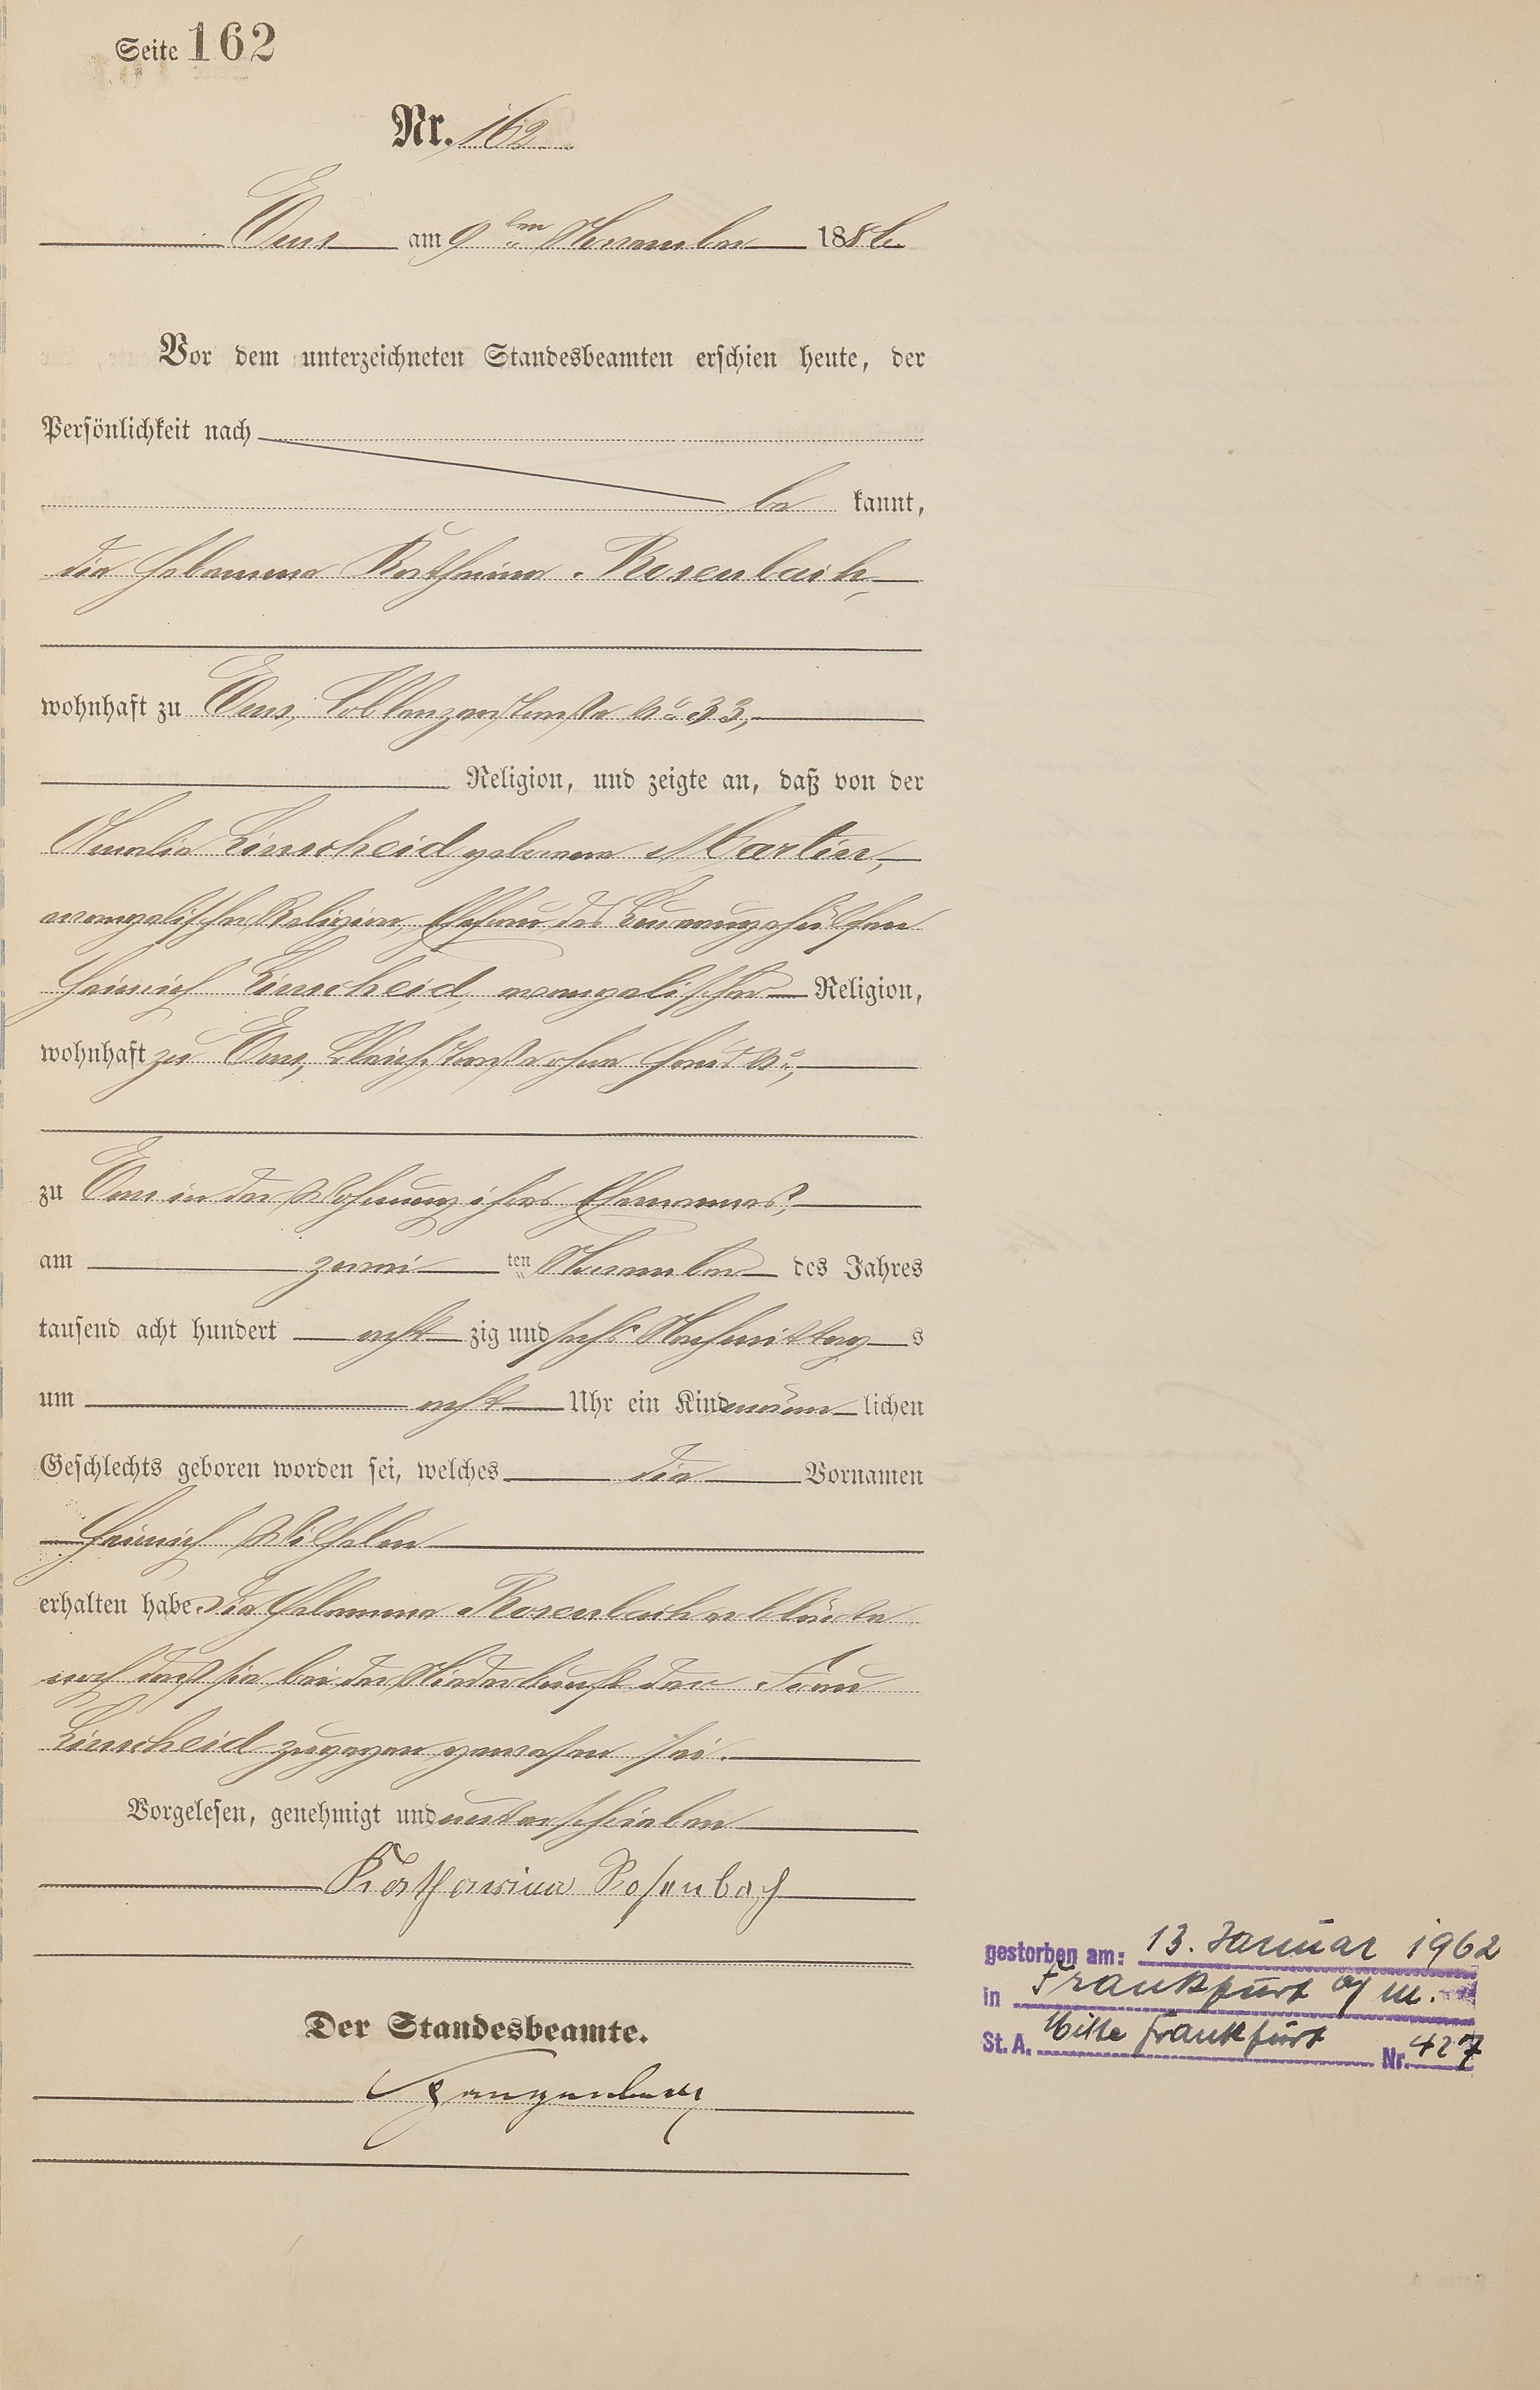 Seite 162
Nr. 162
Ems am 9ten November 1886
Vor dem unterzeichneten Standesbeamten erschien heute, der
Persönlichkeit nach
be kannt,
die Hebamme Katharina Rosenbach,
wohnhaft zu Ems, Coblenzerstraße No 33,
Religion, und zeigte an, daß von der
Amalie Linscheid geborene Martin,
evangelischer Religion, Ehefrau des
Heinrich Linscheid, evangelischer Religion,
wohnhaft zu Ems, Bleichstraße ohne Haus No,
zu Ems in der Wohnung ihres Ehemannes,
am zwei ten November des Jahres
tausend acht hundert acht zig und sechs Nachmittag s
um acht Uhr ein Kind männ lichen
Geschlechts geboren worden sei, welches die Vornamen
Heinrich Wilhelm
erhalten habe. Die Hebamme Rosenbach erklärte
noch daß sie bei der Niederkunft der Frau
Linscheid zugegen gewesen sei.
Vorgelesen, genehmigt und unterschrieben
Katharina Rosenbach
Der Standesbeamte.
gestorben am: 13. Januar 1962
in Frankfurt a/M.
St. A. Mitte Frankfurt Nr. 427